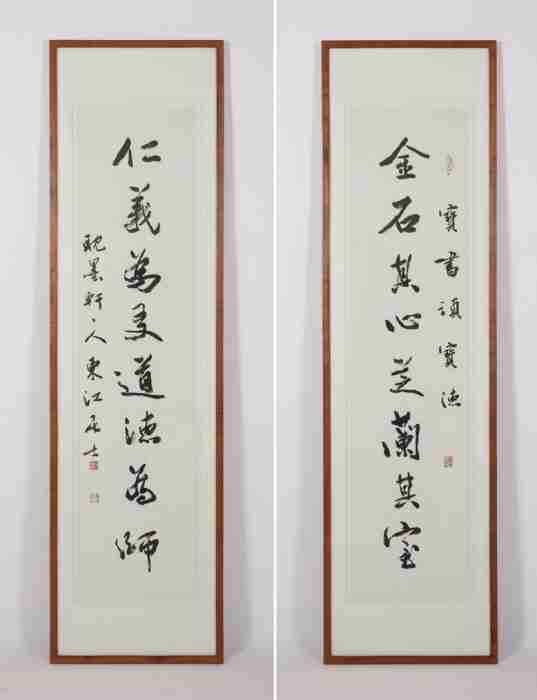 寶書頌寶德
金石其心芝蘭其室
仁義為友道德為師
耽墨軒、人東江居士